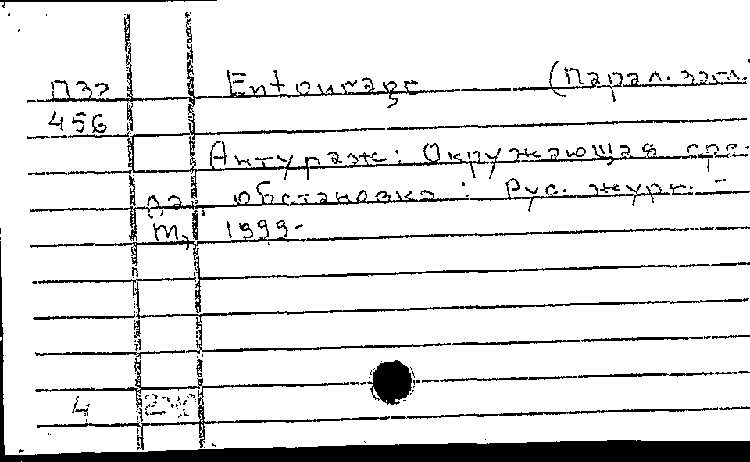 П32 Entourage (Парал. загл.
456
Антураж: Окружающая сре-
да, обстановка: Рус. журн. -
М, 1999-
4 2ч/о